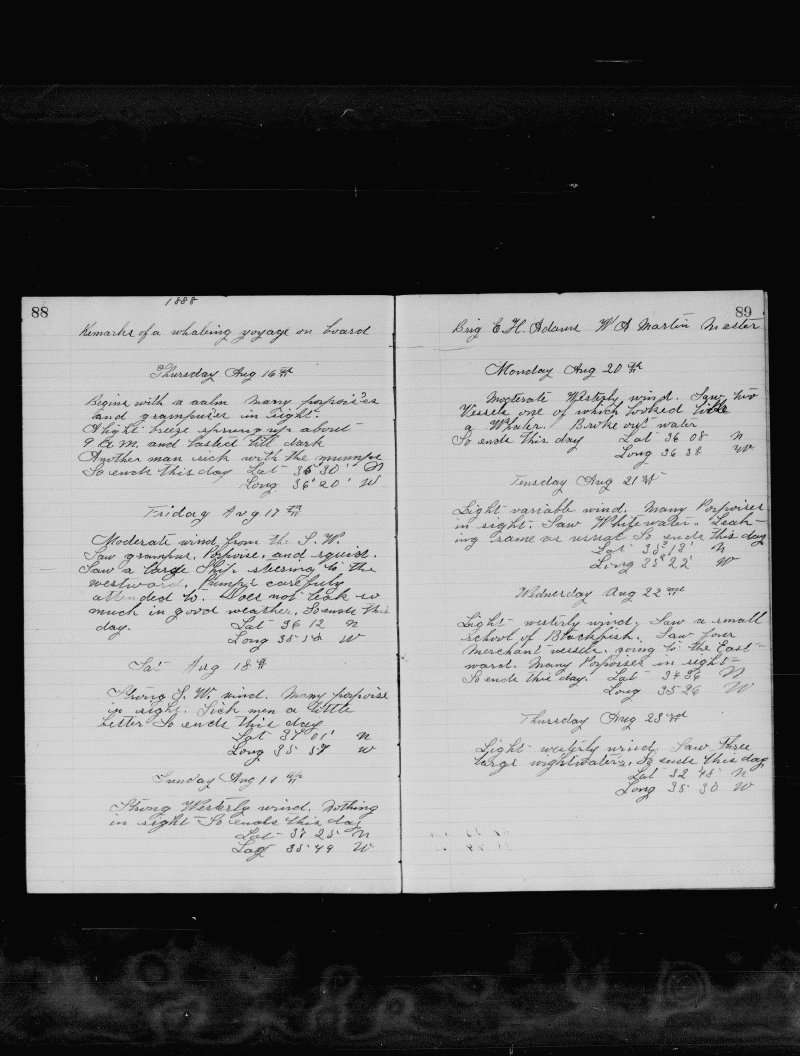 88
1888
Remarks of a whaleing voyage on board
Thursday Aug 16th
Begins with a calm Many porpoises
and grampuses in sight.
A light breeze sprung up about
9 A.M. and lasted till dark
Another man sick with the mumps
So ends this day Lat 36 30' N
Long 36° 20' W
Friday Aug 17th
Moderate wind from the S.W.
Saw grampus, Porpoise, and squid.
Saw a large Ship steering to the
westward. Pumps carefuly
attended to. Does not leak so
much in good weather. So ends this
day. Lat 36 12 N
Long 35 58 W
Sat Aug 18th
Strong S. W. wind. Many porpoise
in sight. Sick men a little
better So ends this day
Lat 37 01' N
Long 35 57 W
Sunday Aug 19th
Strong Westerly wind. Nothing
in sight So ends this day
Lat 37 25 N
Log 35 49 W
89
Brig E. H. Adams W A Martin Master
Monday Aug 20th
Moderate Westerly wind. Saw two
Vessels one of which looked like
a Whaler. Broke out water
So ends this day Lat 36 08 N
Long 36 38 W
Tuesday Aug 21st
Light variable wind. Many Porpoises
in sight. Saw Whitewater. Leak-
ing same as usual So ends this day
Lat 35° 18' N
Long 35° 22' W
Wednesday Aug 22nd
Light westerly wind. Saw a small
School of Blackfish. Saw four
Merchant vessels. going to the East-
ward. Many Porpoises in sight
So ends this day. Lat 34 36 N
Long 35 26 W
Thursday Aug 23rd
Light westerly wind. Saw Three
large nightwaters. So ends this day
Lat 32 48 N
Long 35 30 W